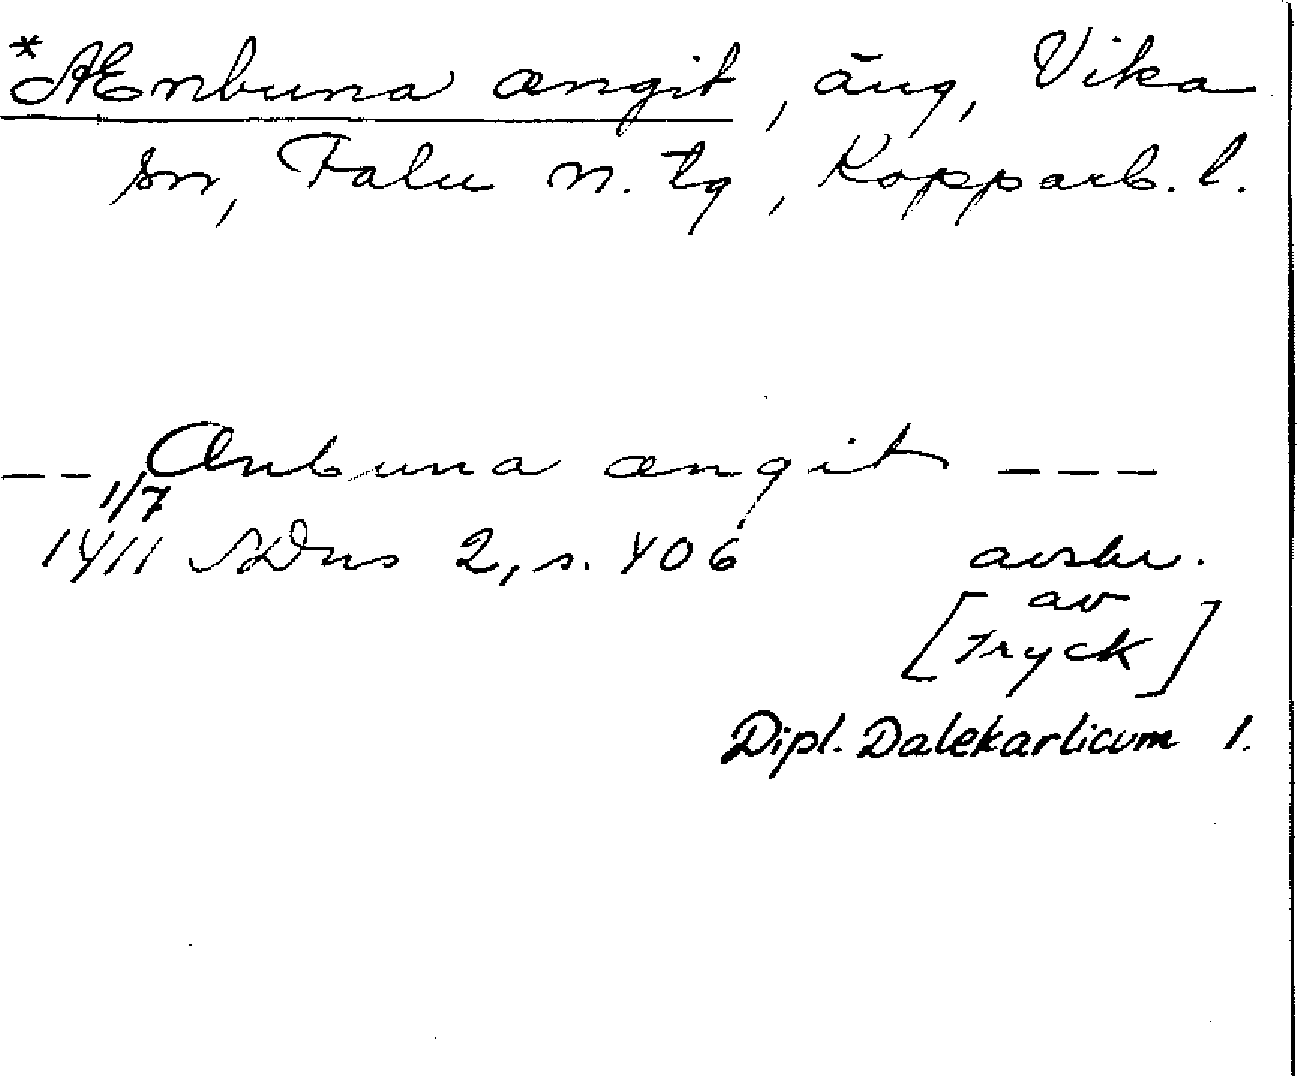 *Ænbuna ængit, äng, Vika
sn, Falu n. tg, Kopparb. l.
-- Ænbuna ængit ---
1/7
1411 SDns 2, s. 406 avskr.
av
[tryck]
Dipl. Dalekarlicum 1.